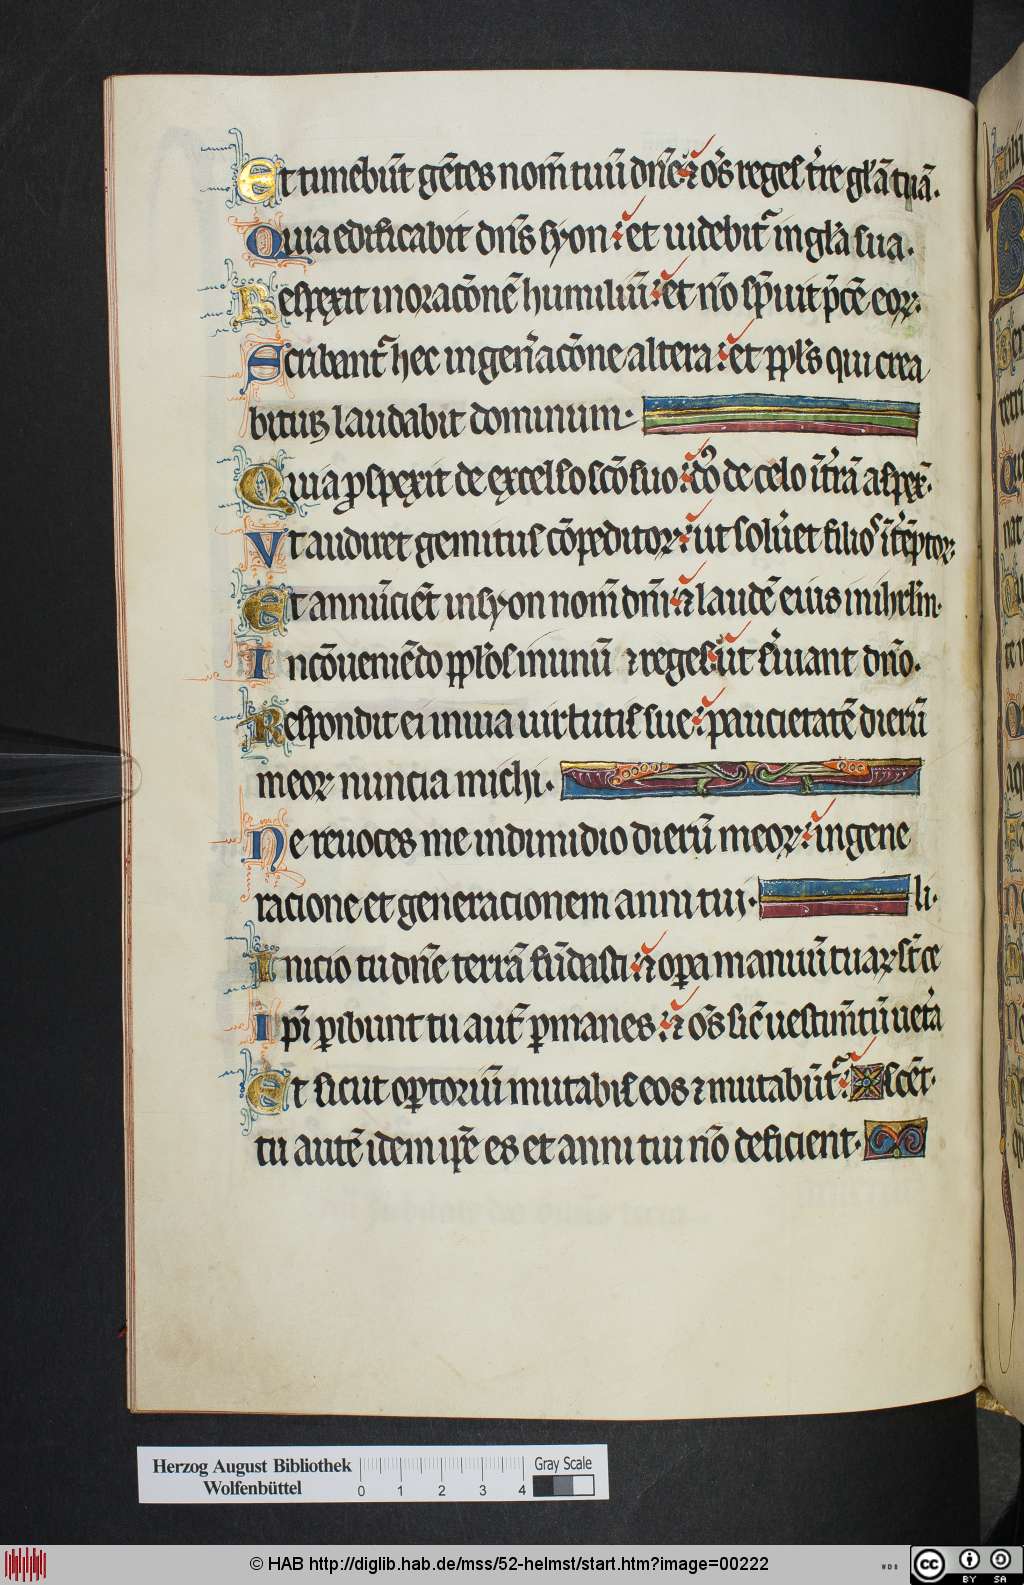 Et timebūt gētes nom̄ tuū dn̄e ⁊ oēs reges t̄re gl̄iā tuā.
Quia edificabit dn̄s syon et uidebit᷑ in gl̄a sua.
Respexit in orac̄onē humiliū et nō sp̄uit p̄cē eoꝝ.
Scribant᷑ hec in gen̄ac̄one altera et ppl̄s qui crea
bitur laudabit dominum.
Quia ꝓspexit de excelso sc̄o suo dn̄s de celo ī t̄rā aspex̄.
Vt audiret gemitus cōpeditoꝝ ut solu̓et filios īt̓ēptoꝝ
Et annūciēt in syon nom̄ dn̄i ⁊ laudē eius in ihrl̄m.
In cōueniēdo ppl̄os in unū ⁊ reges ut s̓uiant dn̄o.
Respondit ei in uia uirtutis sue paucietatē dierū
meoꝝ nuncia michi.
Ne reuoces me in dimidio dierū meoꝝ in gene
racione et generacionem anni tui. li.
Inicio tu dn̄e terrā fūdasti ⁊ oꝑa manuū tuaꝝ st̄ ce
Ipī ꝑibunt tu aut̄ ꝑmanes ⁊ oēs sic̄ uestim̄tū uet̓a
Et sicut oꝑtoriū mutabis eos ⁊ mutabūt᷑ scēt.
tu autē idem ip̄e es et anni tui nō deficient.
Herzog August Bibliothek
Wolfenbüttel
0 1 2 3 4
Gray Scale
© HAB http://diglib.hab.de/mss/52-helmst/start.htm?image=00222
WDB
cc BY SA